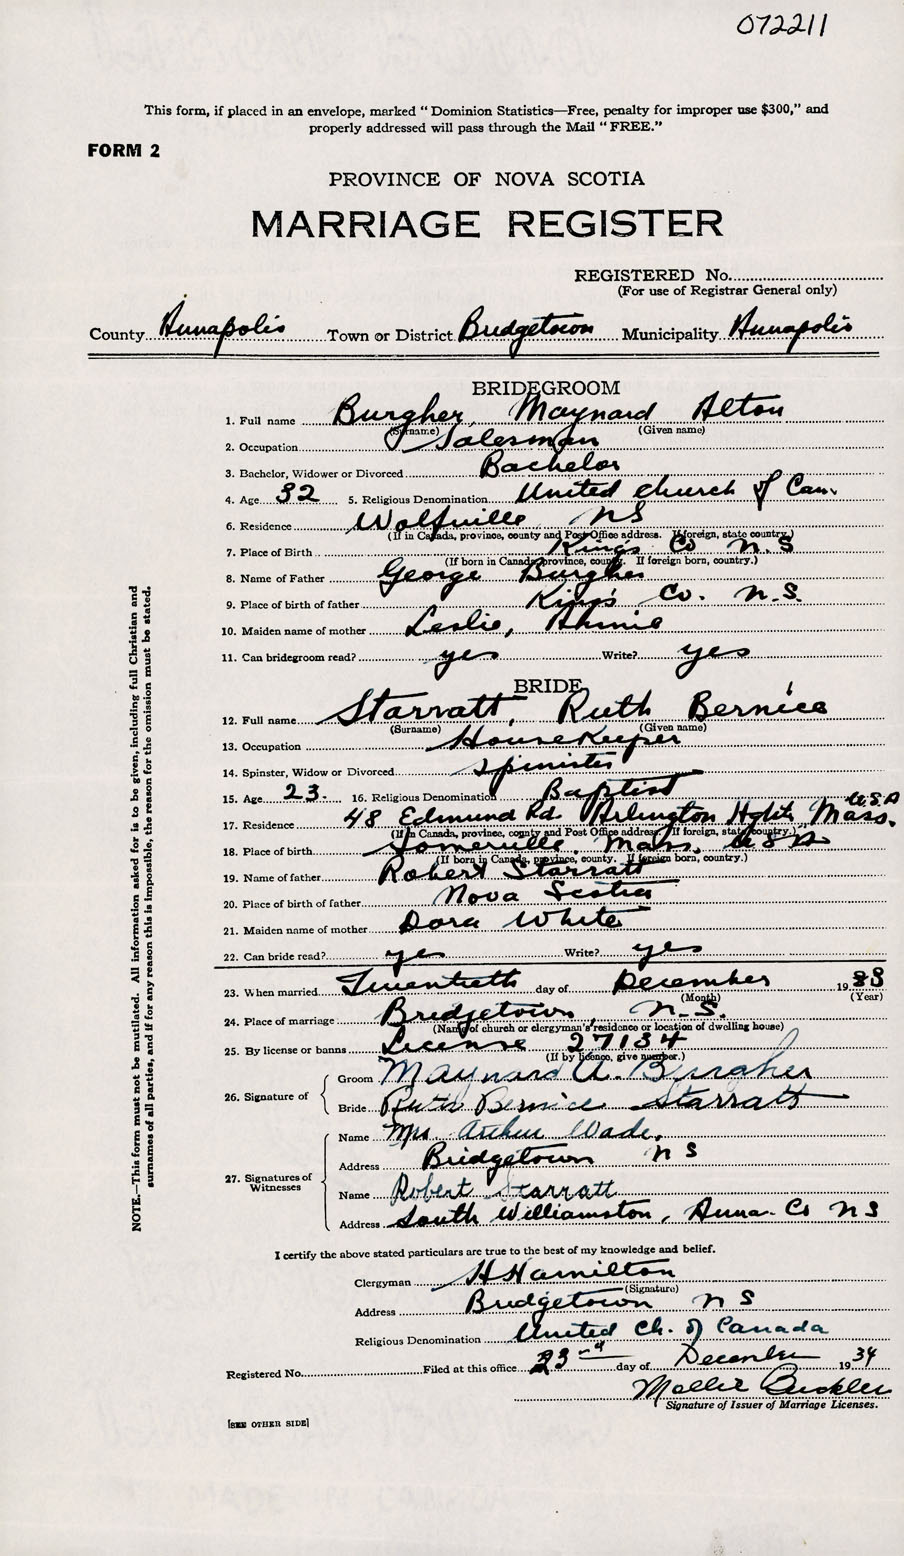 072211
This form, if placed in an envelope, marked "Dominion Statistics—Free, penalty for improper use $300," and
properly addressed will pass through the Mail "FREE."
FORM 2
PROVINCE OF NOVA SCOTIA
MARRIAGE REGISTER
REGISTERED No.
(For use of Registrar General only)
County Annapolis Town or District Bridgetown Municipality Annapolis
BRIDEGROOM
1. Full name Burgher, Maynard Alton
(Surname) (Given name)
2. Occupation Salesman
3. Bachelor, Widower or Divorced Bachelor
4. Age 32 5. Religious Denomination United Church of Can.
6. Residence Wolfville NS
(If in Canada, province, county and Post Office address. If foreign, state country.)
7. Place of Birth King's Co N.S
(If born in Canada, province, county. If foreign born, country.)
8. Name of Father George Burgher
9. Place of birth of father King's Co. N.S.
10. Maiden name of mother Leslie, Annie
11. Can bridegroom read? yes Write? yes
BRIDE
12. Full name Starratt, Ruth Bernice
(Surname) (Given name)
13. Occupation Housekeeper
14. Spinster, Widow or Divorced Spinster
15. Age 23. 16. Religious Denomination Baptist
17. Residence 48 Edmund Rd Arlington Hghts Mass. U.S.A
(If in Canada, province, county and Post Office address. If foreign, state country.)
18. Place of birth Somerville, Mass, USA
(If born in Canada, province, county. If foreign born, country.)
19. Name of father Robert Starratt
20. Place of birth of father Nova Scotia
21. Maiden name of mother Dora White
22. Can bride read? yes Write? yes
23. When married Twentieth day of December 19
(Month) (Year)
24. Place of marriage Bridgetown, N.S.
(Name of church or clergyman's residence or location of dwelling house)
25. By license or banns License 27134
(If by licence, give number.)
26. Signature of
Groom Maynard A. Burgher
Bride Ruth Bernice Starratt
27. Signatures of Witnesses
Name Mrs Arthur Wade,
Address Bridgetown NS
Name Robert Starratt
Address South Williamston, Anna. Co NS
I certify the above stated particulars are true to the best of my knowledge and belief.
Clergyman H Hamilton
(Signature)
Address Bridgetown NS
Religious Denomination United Ch. of Canada
Registered No. Filed at this office 23rd day of December 1934
Mollie Buckler
Signature of Issuer of Marriage Licenses.
[SEE OTHER SIDE]
NOTE.—This form must not be mutilated. All information asked for is to be given, including full Christian and
surnames of all parties, and if for any reason this is impossible, the reason for the omission must be stated.